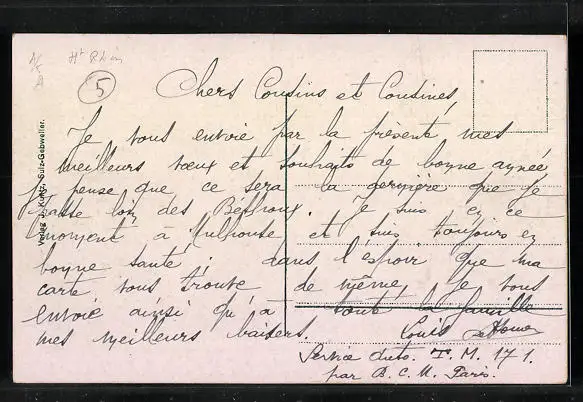 Ht Rhin
5
Chers Cousins et Cousines,
Je vous envoie par la présente mes
meilleurs vœux et souhaits de bonne année
je pense que ce sera la dernière que je
passe loin des . Je suis en ce
moment à Mulhouse et suis toujours en
bonne santé ; dans l'espoir que ma
carte vous trouve de même, je vous
envoie ainsi qu'à toute la famille
mes meilleurs baisers. Louis
Service auto. T. M. 171.
par B. C. M. Paris.
Verlag J. Kuntz, Sulz-Gebweiler.